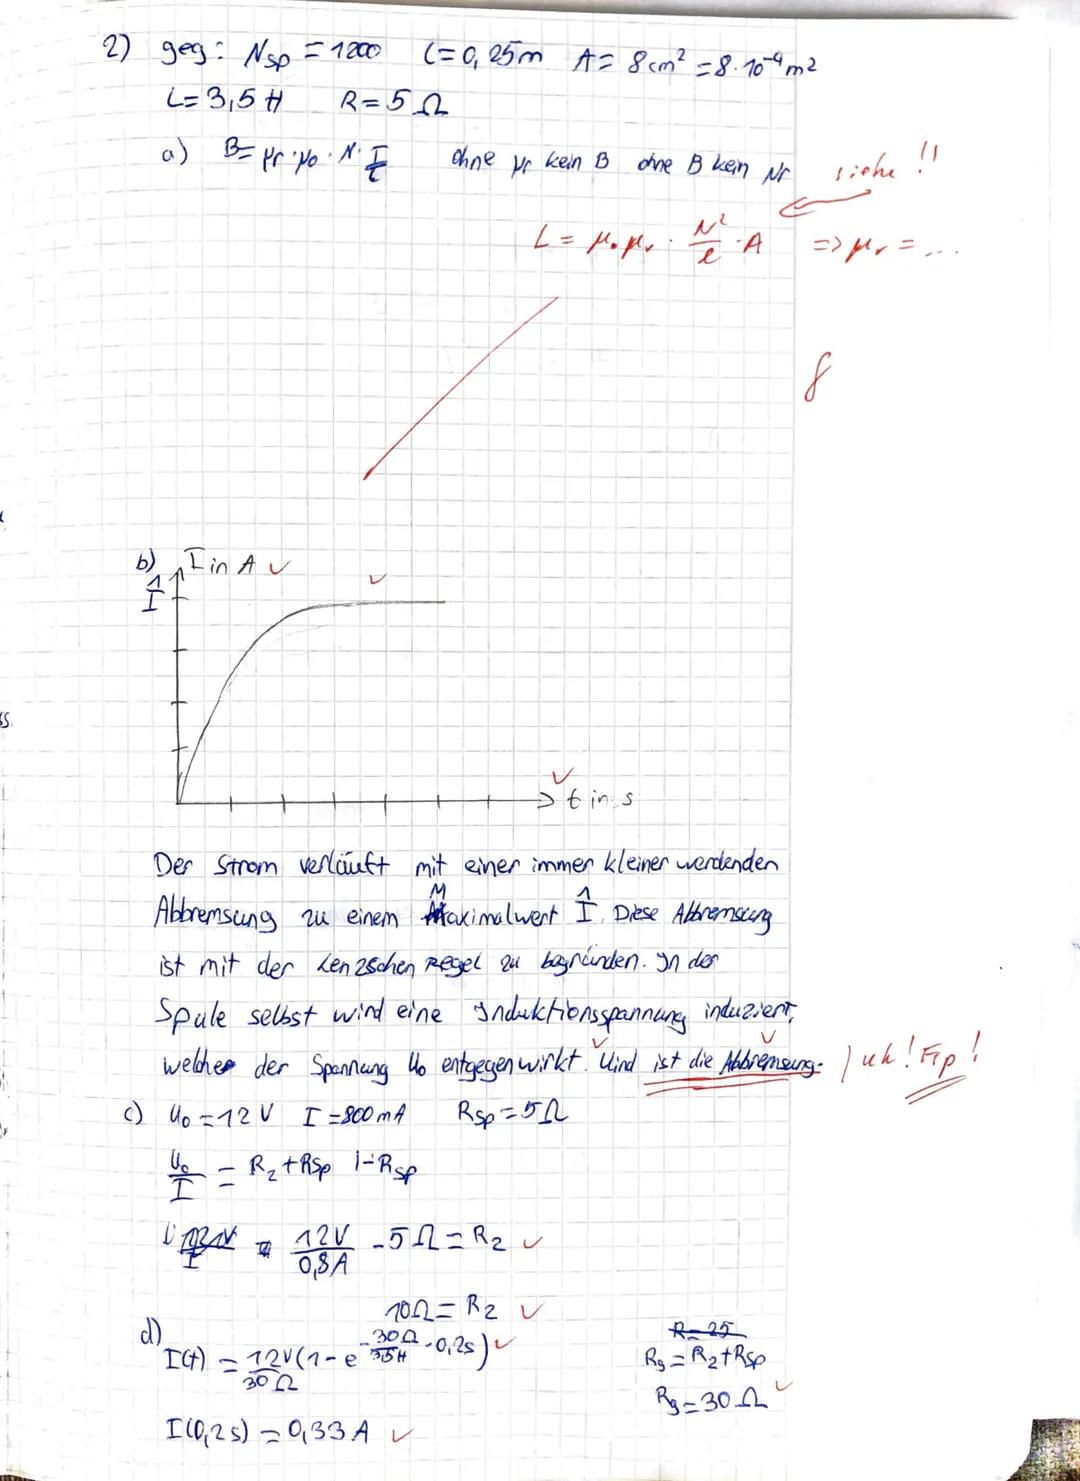 2) geg: Nsp = 1200 l = 0,25m A = 8cm² = 8·10⁻⁴m²
L = 3,5 H R = 5 Ω
a) B = μr·μ0·N·I/l ohne μr kein B ohne B kein μr siehe !!
L = μ0 μr · N²/l · A => μr = ...
8
b) I in A ✓
Î ✓
✓
t in s
Der Strom verläuft mit einer immer kleiner werdenden
Abbremsung zu einem Maximalwert Î. Diese Abbremsung
ist mit der Lenzschen Regel zu begründen. In der
Spule selbst wird eine Induktionsspannung induziert,
welche der Spannung U0 entgegenwirkt. Uind ist die Abbremsung. ! Exp!
c) U0 = 12 V I = 800 mA Rsp = 5 Ω
U0/I = R2 + Rsp |-Rsp
12V/0,8A - 5 Ω = R2 ✓
10Ω = R2 ✓
d)
I(t) = 12V/30Ω (1 - e^(-30Ω/3,5H · 0,2s)) ✓
R = 25
Rg = R2 + Rsp
Rg = 30 Ω ✓
I(0,2s) = 0,33 A ✓